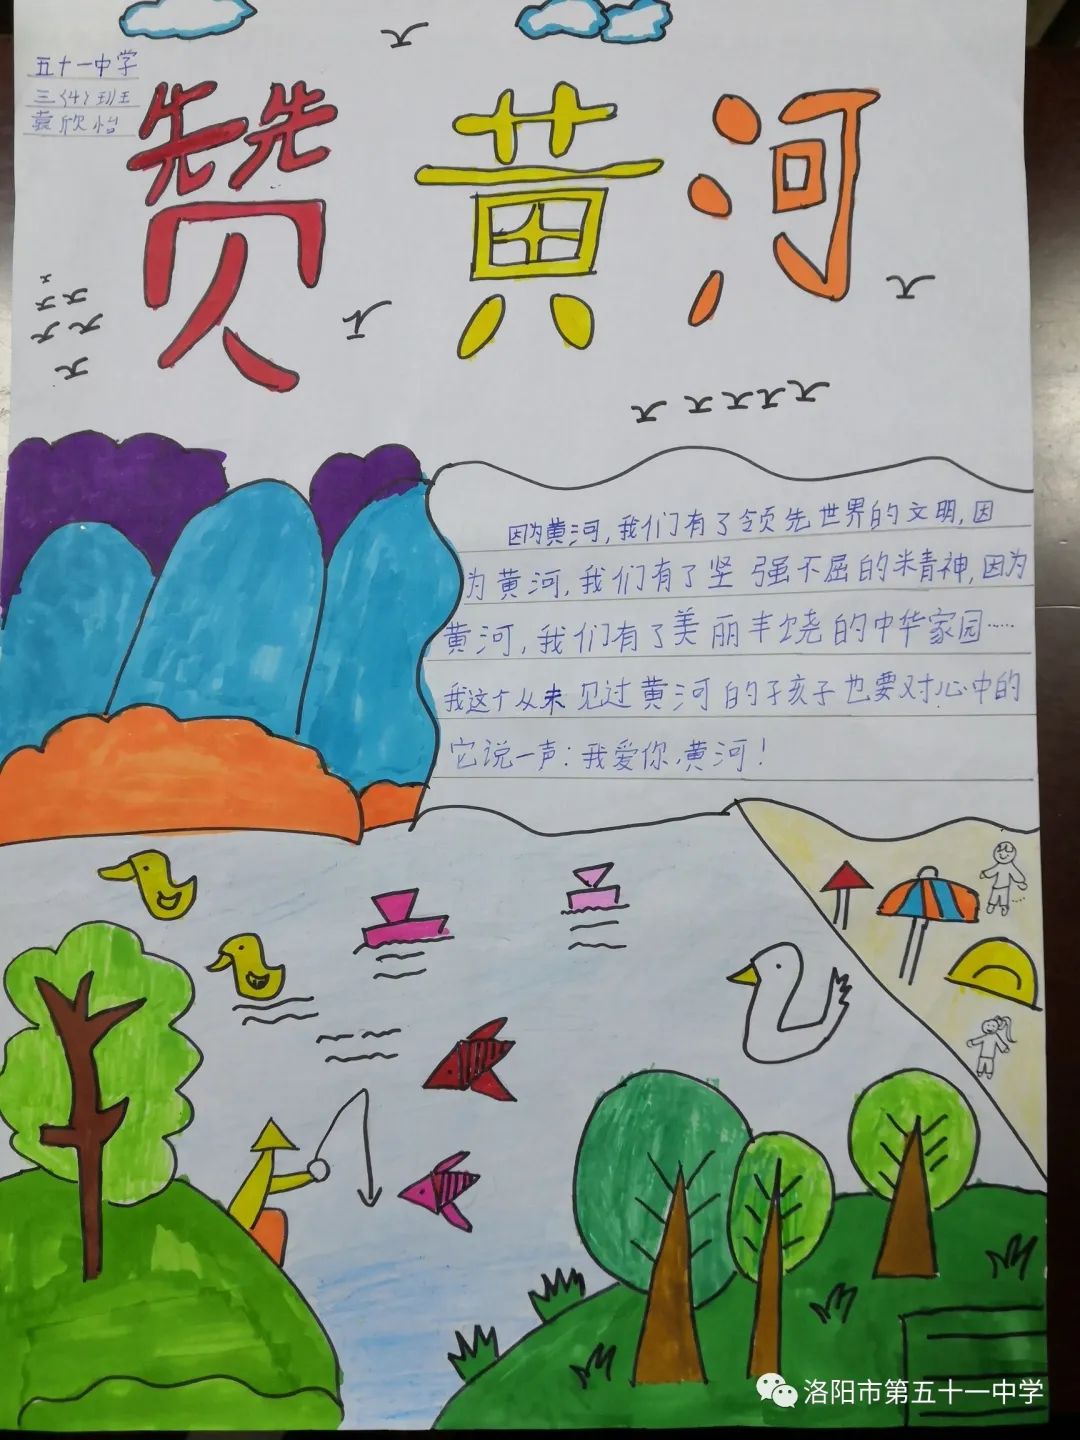 五十一中学
三(4)班
袁欣怡
赞黄河
因为黄河,我们有了领先世界的文明,因
为黄河,我们有了坚强不屈的精神,因为
黄河,我们有了美丽丰饶的中华家园……
我这个从未见过黄河的孩子也要对心中的
它说一声:我爱你,黄河!
洛阳市第五十一中学